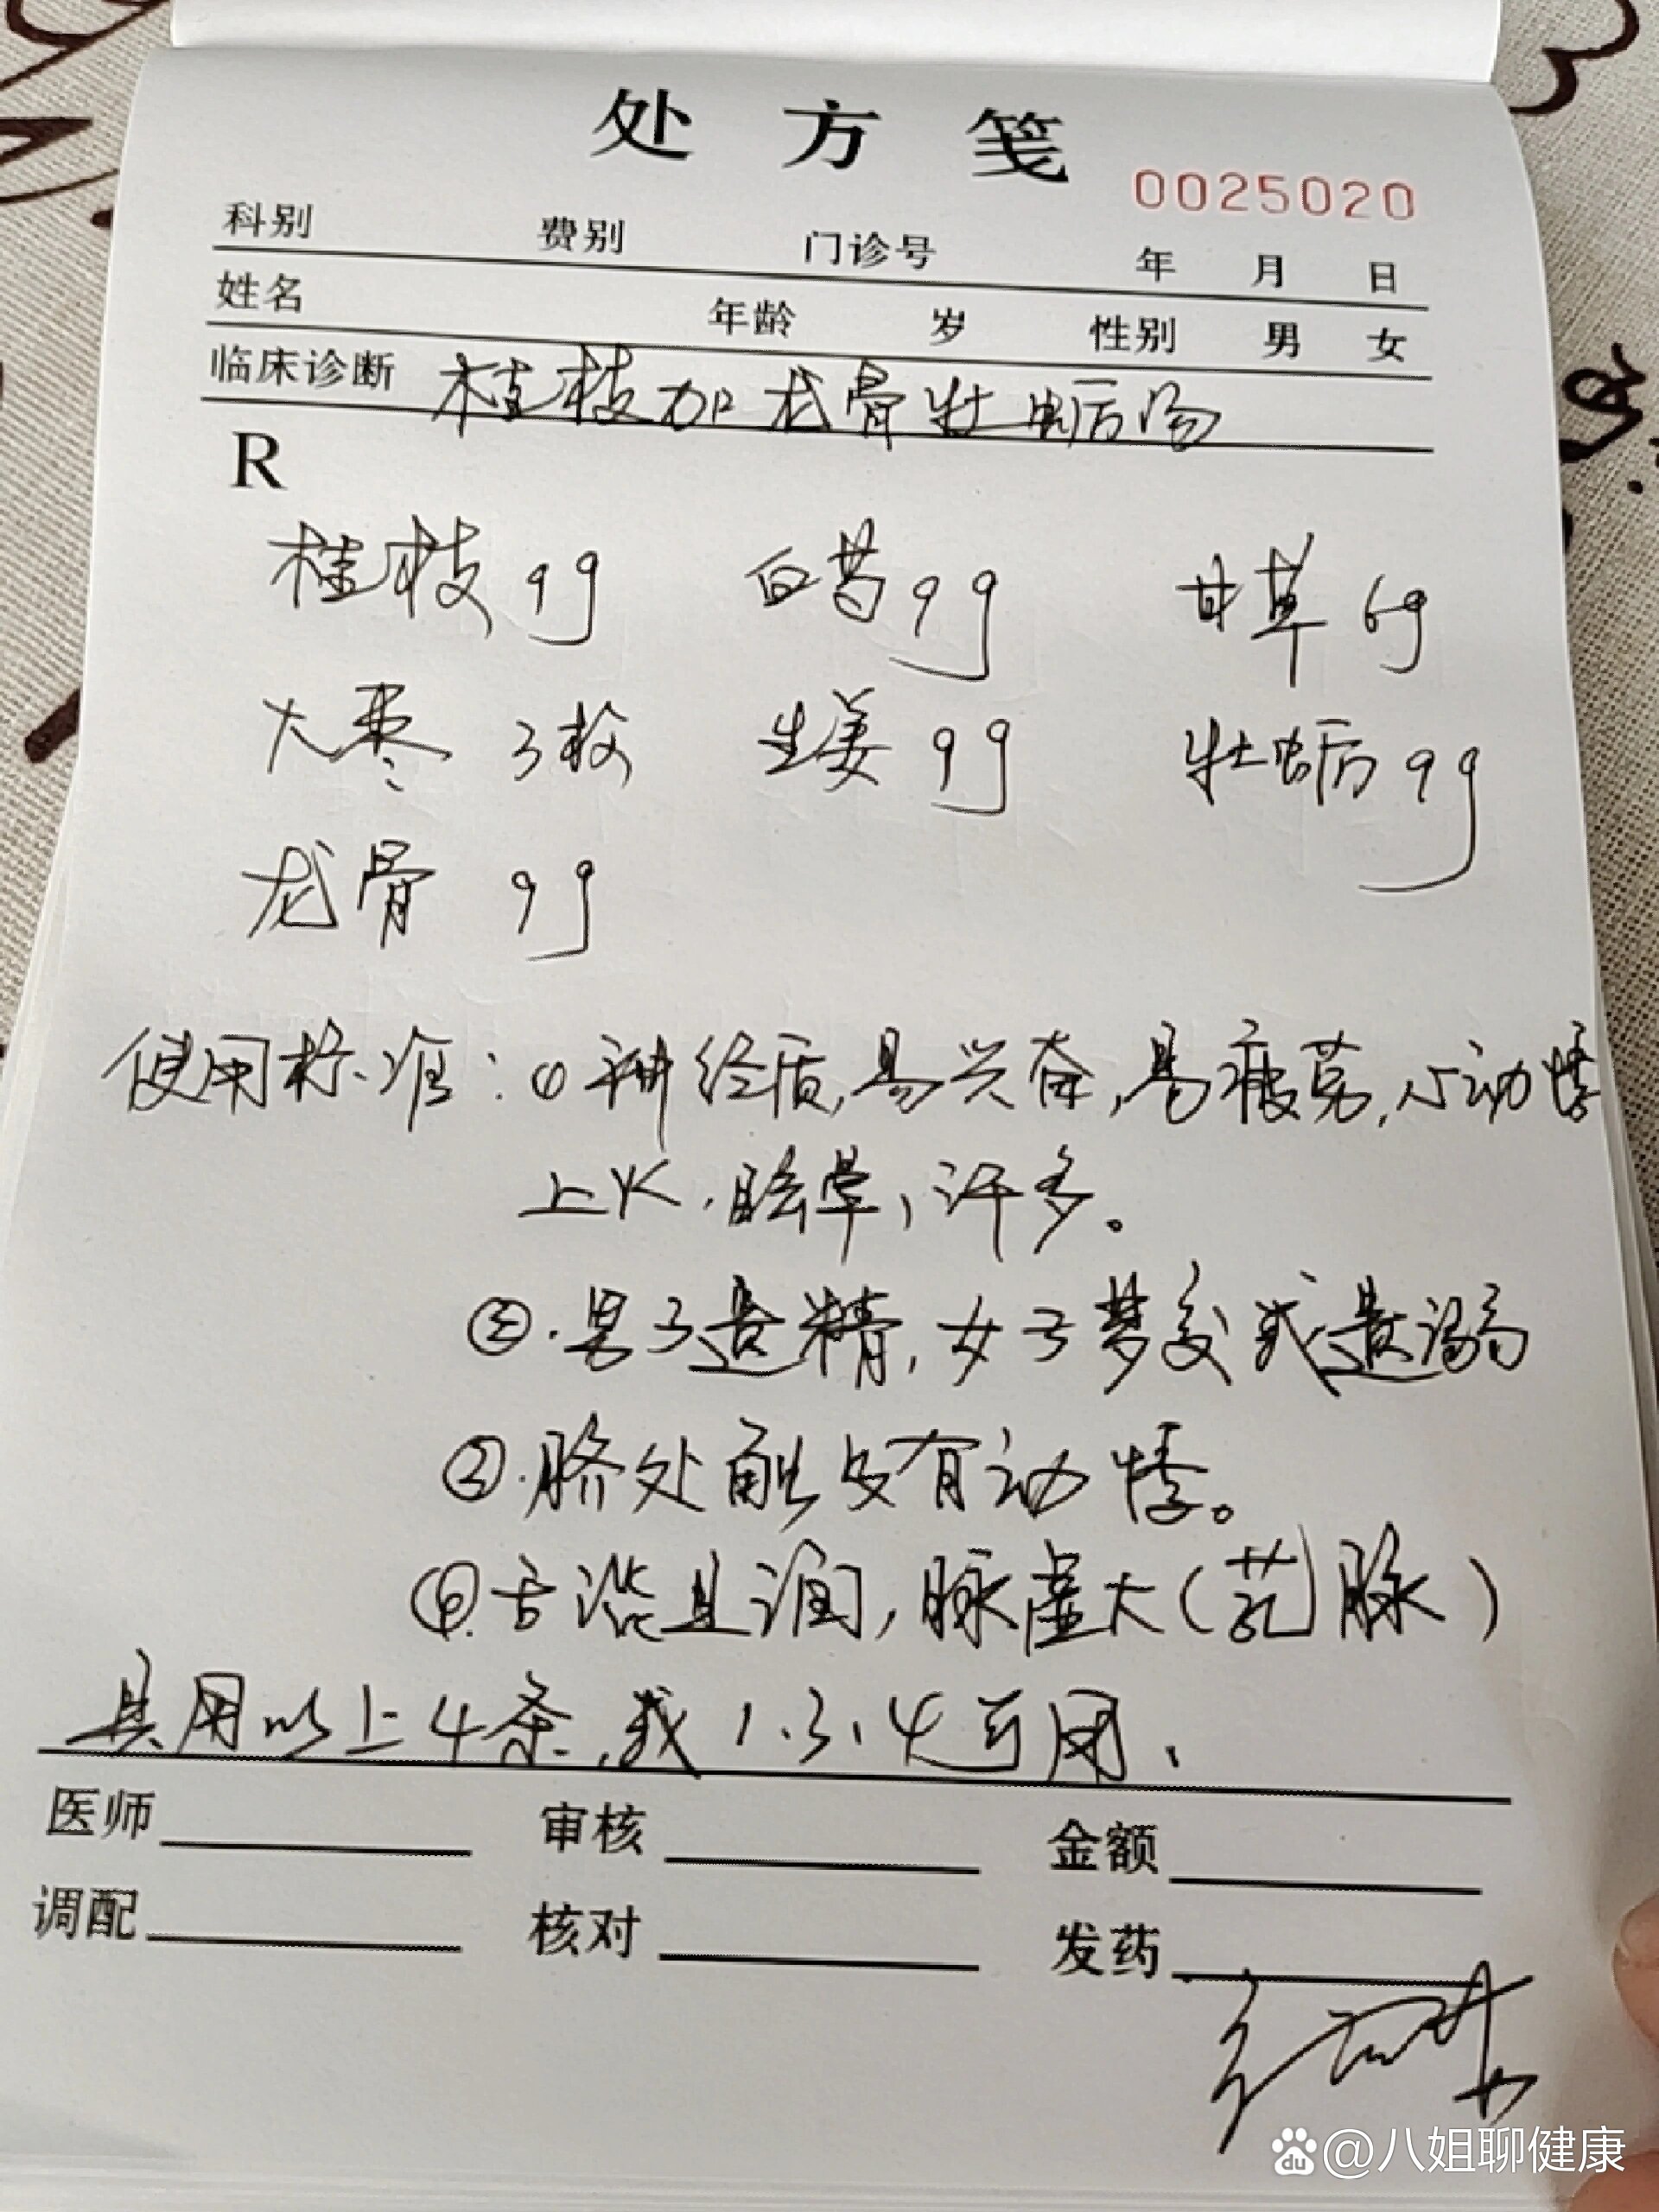 处方笺
0025020
科别 费别 门诊号 年 月 日
姓名 年龄 岁 性别 男 女
临床诊断 桂枝加龙骨牡蛎汤
R
桂枝 9g 白芍 9g 甘草 6g
大枣 3枚 生姜 9g 牡蛎 9g
龙骨 9g
使用标准：① 神经质，易兴奋，易疲劳，心动悸
上火、眩晕，汗多。
②.男子遗精，女子梦交或遗溺
③.脐处触及有动悸。
④.舌淡且润，脉虚大（芤脉）
具用以上4条，或1.3.4可用.
医师 审核 金额
调配 核对 发药
du @八姐聊健康